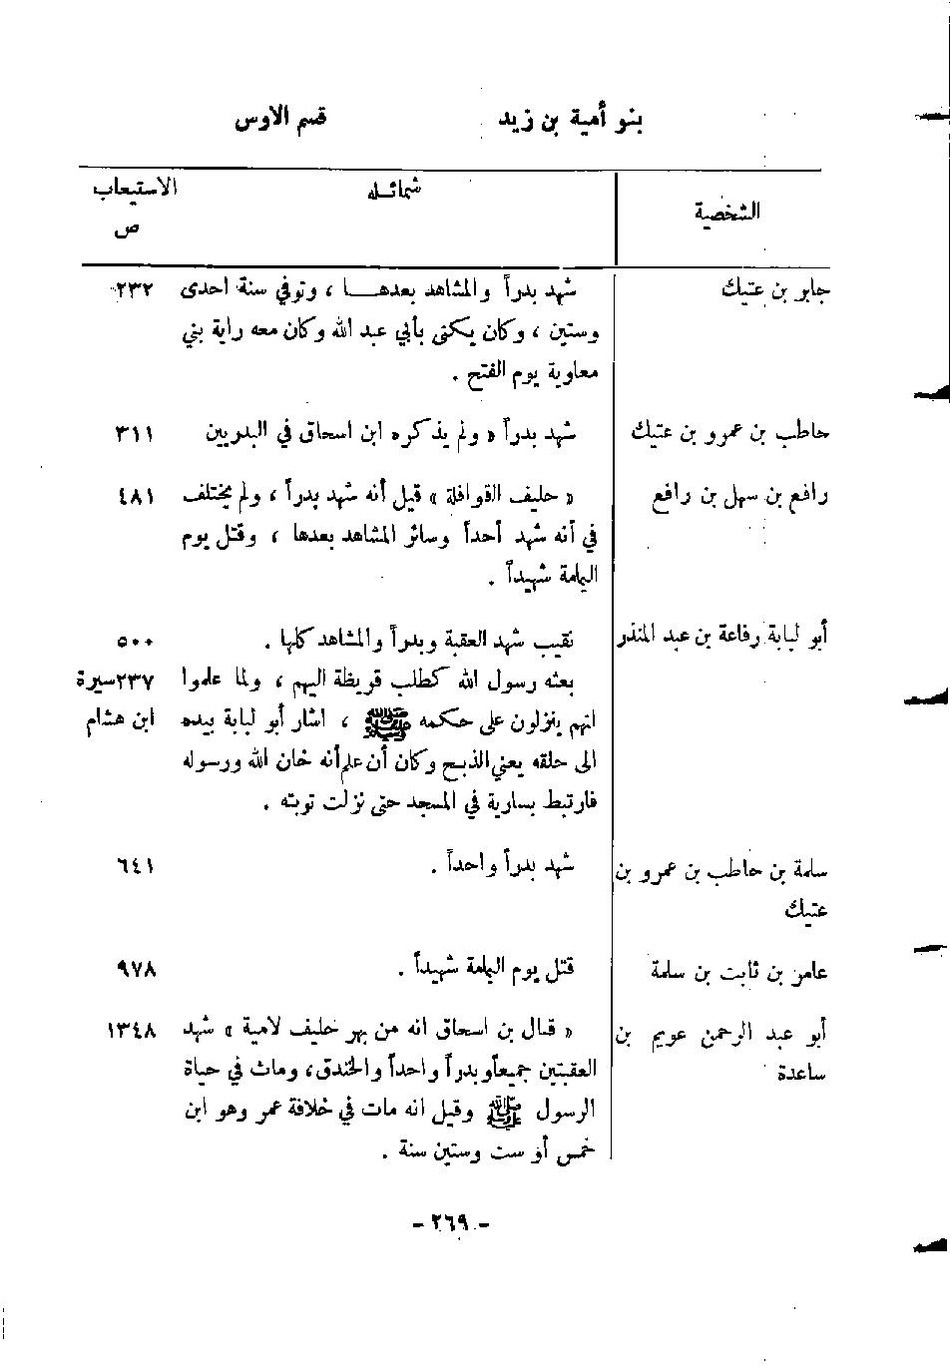 بنو أمية بن زيد قسم الاوس
الشخصية شمائله الاستيعاب
ص
جابر بن عتيك شهد بدراً والمشاهد بعدهـــا ، وتوفي سنة احدى ٢٣٢
وستين ، وكان يكنى بأبي عبد الله وكان معه راية بني
معاوية يوم الفتح .
حاطب بن عمرو بن عتيك شهد بدراً « ولم يذكره ابن اسحاق في البدريين ٣١١
رافع بن سهل بن رافع « حليف القوافلة » قيل أنه شهد بدراً ، ولم يختلف ٤٨١
في أنه شهد أحداً وسائر المشاهد بعدها ، وقتل يوم
اليمامة شهيداً .
أبو لبابة رفاعة بن عبد المنذر نقيب شهد العقبة وبدراً والمشاهد كلها . ٥٠٠
بعثه رسول الله كطلب قريظة اليهم ، ولما علموا ٢٣٧سيرة
انهم ينزلون على حكمه ﷺ ، اشار أبو لبابة بيده ابن هشام
الى حلقه يعني الذبح وكان أن علم أنه خان الله ورسوله
فارتبط بسارية في المسجد حتى نزلت توبته .
سلمة بن حاطب بن عمرو بن شهد بدراً واحداً . ٦٤١
عتيك
عامر بن ثابت بن سلمة قتل يوم اليمامة شهيداً . ٩٧٨
أبو عبد الرحمن عويم بن « قال بن اسحاق انه من بهر حليف لامية » شهد ١٣٤٨
ساعدة العقبتين جميعاً وبدراً واحداً والخندق، ومات في حياة
الرسول ﷺ وقيل انه مات في خلافة عمر وهو ابن
خمس أو ست وستين سنة .
- ٢٦٩ -